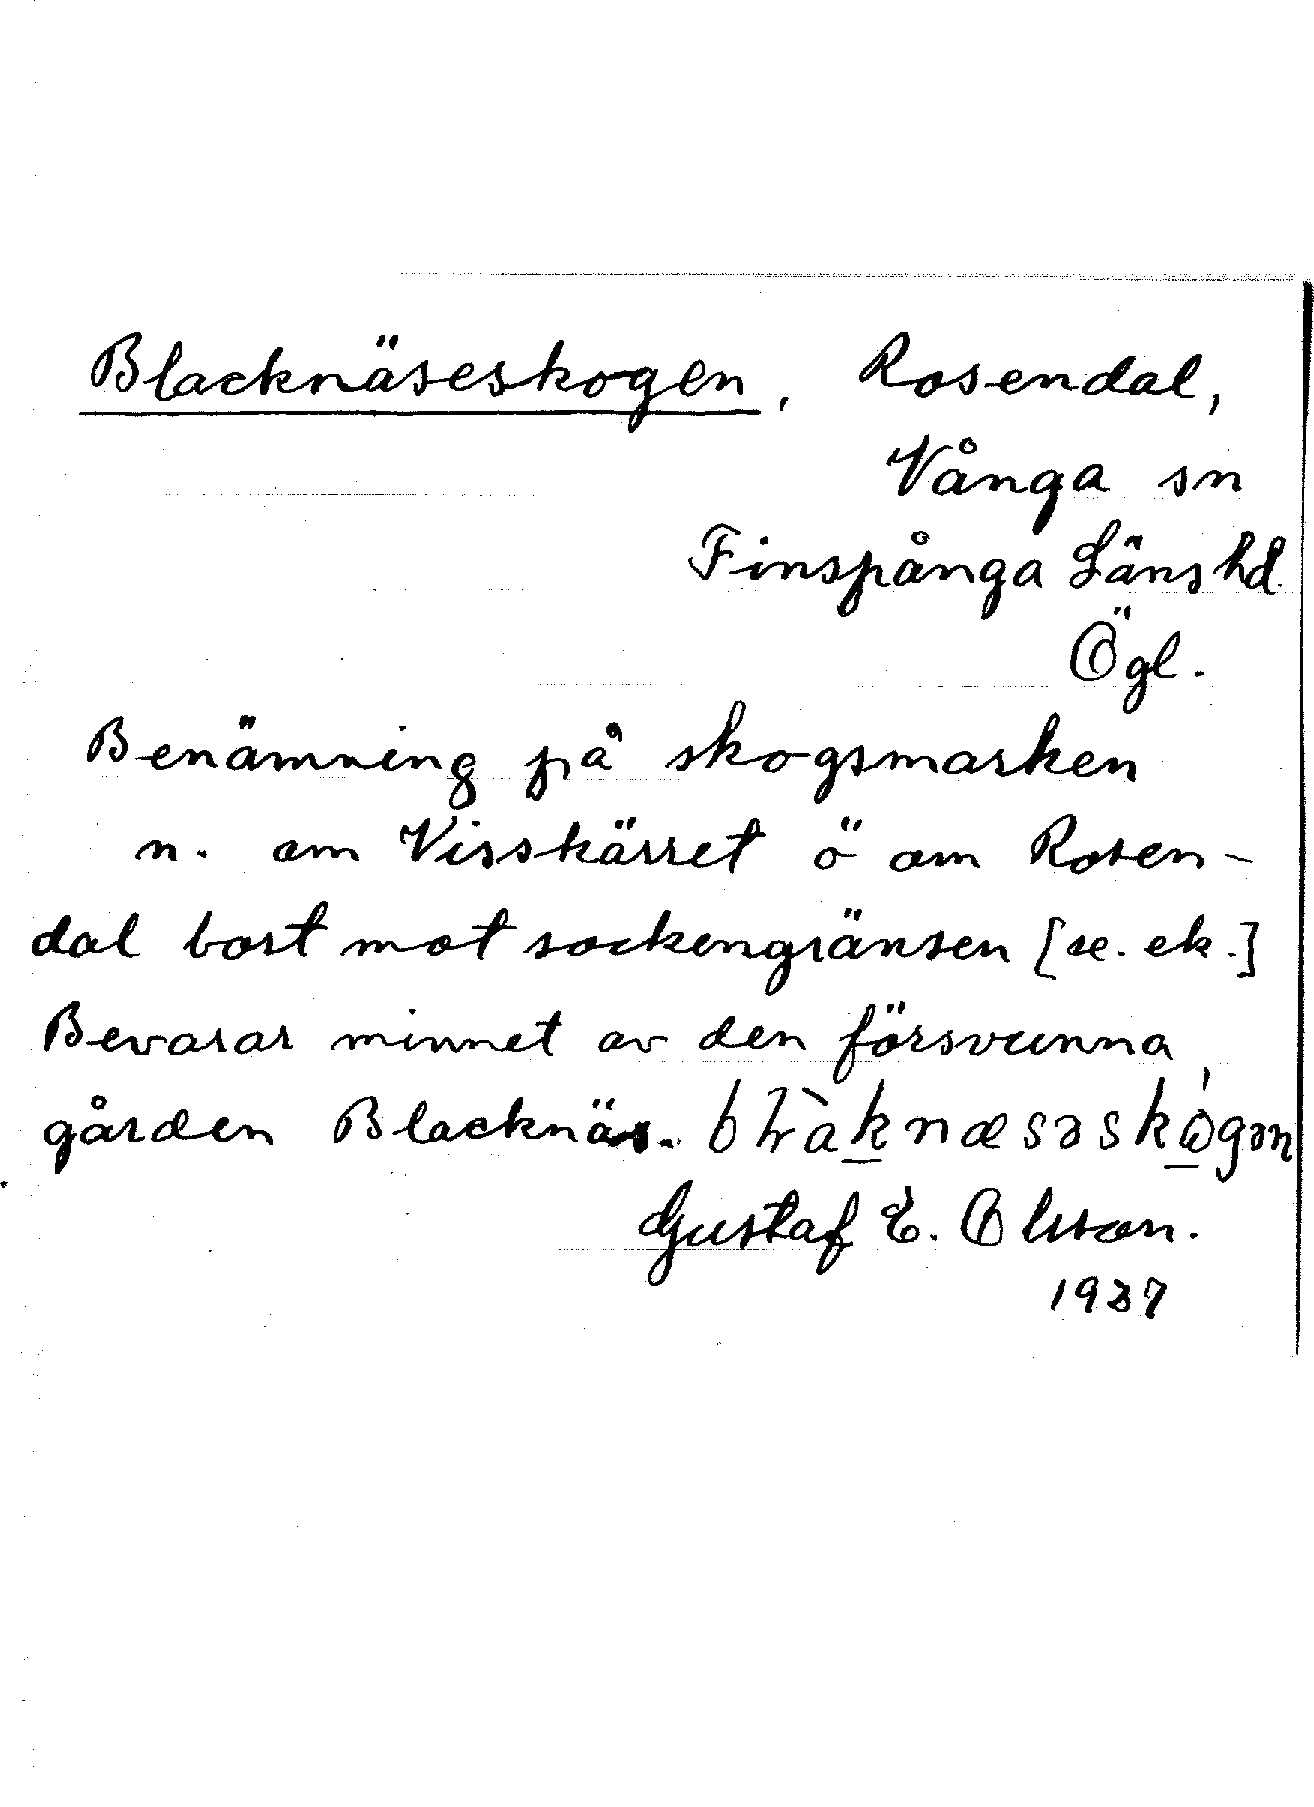 Blacknäseskogen, Rosendal,
Vånga sn
Finspånga Läns hd
Ögl.
Benämning på skogsmarken
n. om Visskärret ö om Rosen-
dal bort mot sockengränsen [se. ek.]
Bevarar minnet av den försvunna
gården Blacknäs. bɫàk̲næsəskọ̲́gən
Gustaf E. Olsson.
1937